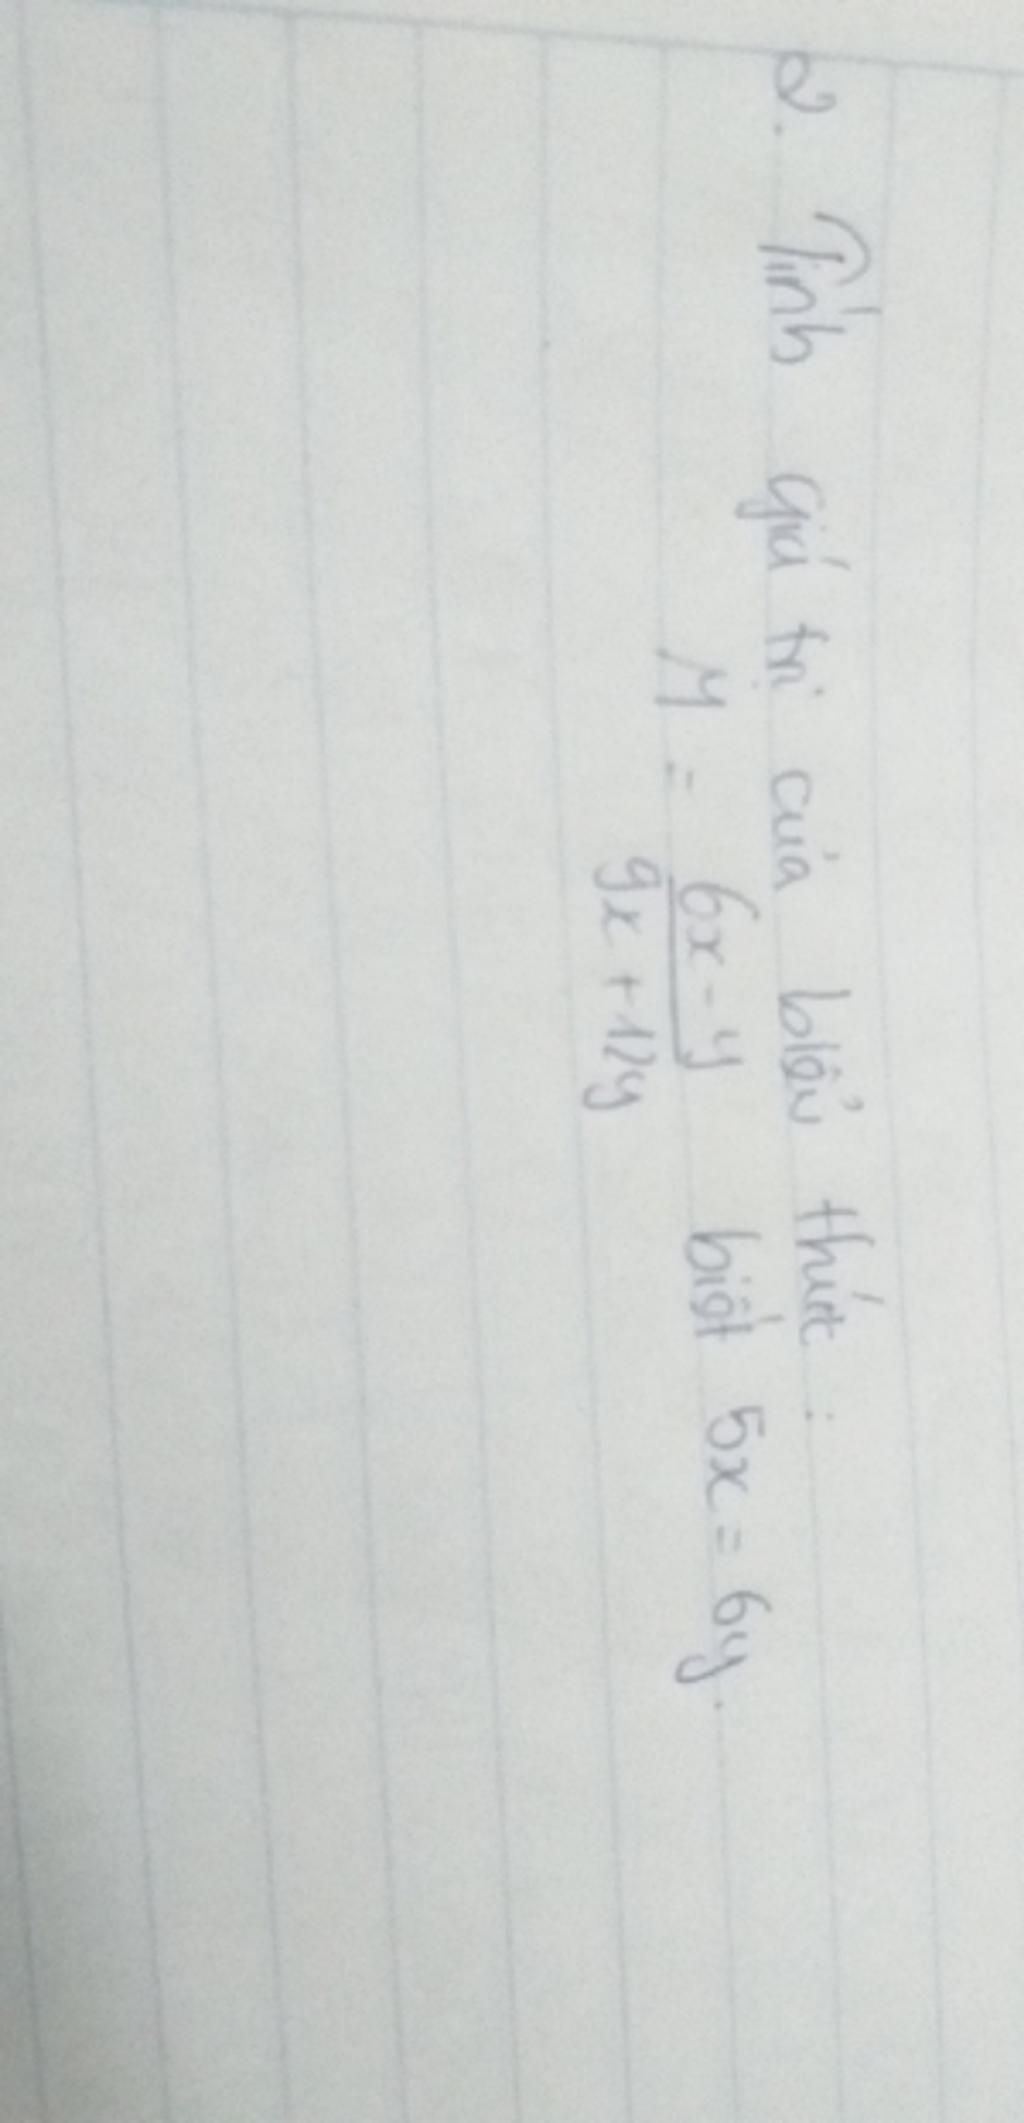 2. Tính giá trị của biểu thức :
M = 6x - y / 9x + 12y biết 5x = 6y.